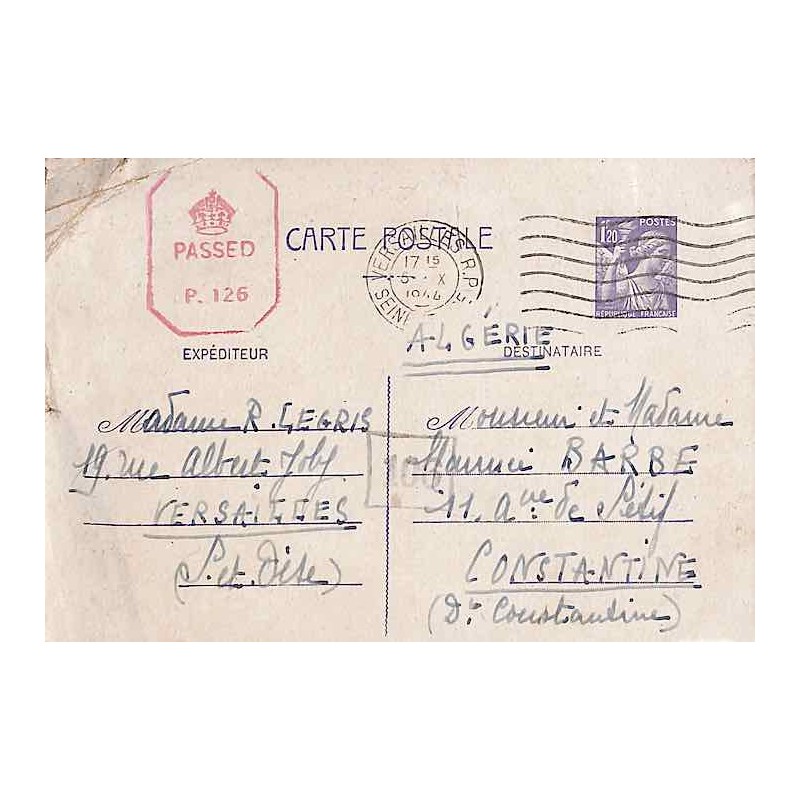 PASSED
P. 126
CARTE POSTALE
VERSAILLES R.P.
17 15
6 - X
1944
SEINE
POSTES
1,20
RÉPUBLIQUE FRANÇAISE
ALGÉRIE
EXPÉDITEUR
Madame R. LEGRIS
19, rue Albert Joly
VERSAILLES
(S. et. Oise)
DESTINATAIRE
Monsieur et Madame
Maurice BARBE
11. Aue de Sétif
CONSTANTINE
(Dt Constantine)